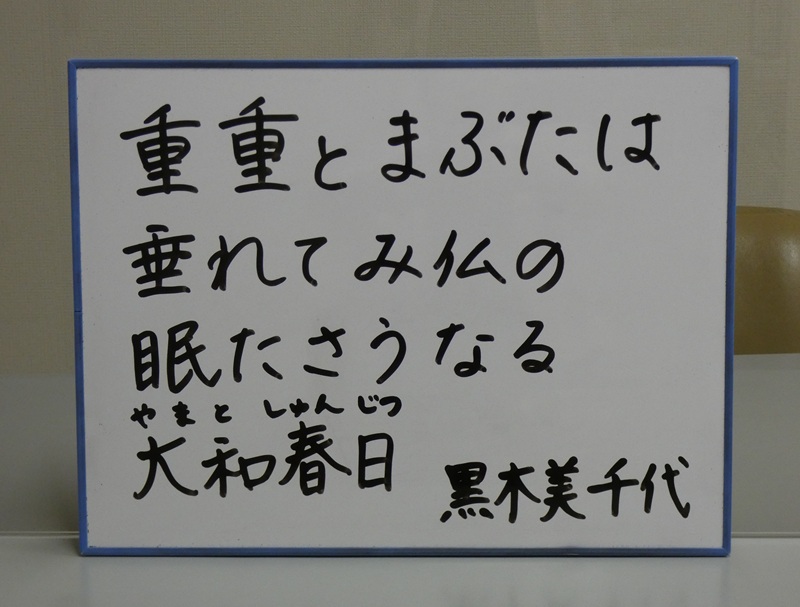 重重とまぶたは
垂れてみ仏の
眠たさうなる
やまと しゅんじつ
大和春日
黒木美千代